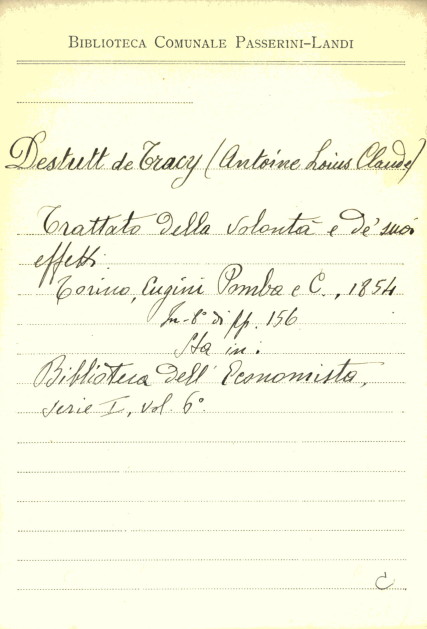 Biblioteca Comunale Passerini-Landi
Destutt de Tracy (Antoine Loius Claude)
Trattato della volontà e de' suoi
effetti.
Torino, Cugini Pomba e C., 1854
In-8° di pp. 156
Sta in:
Biblioteca dell'Economista,
serie I, vol. 6°.
C